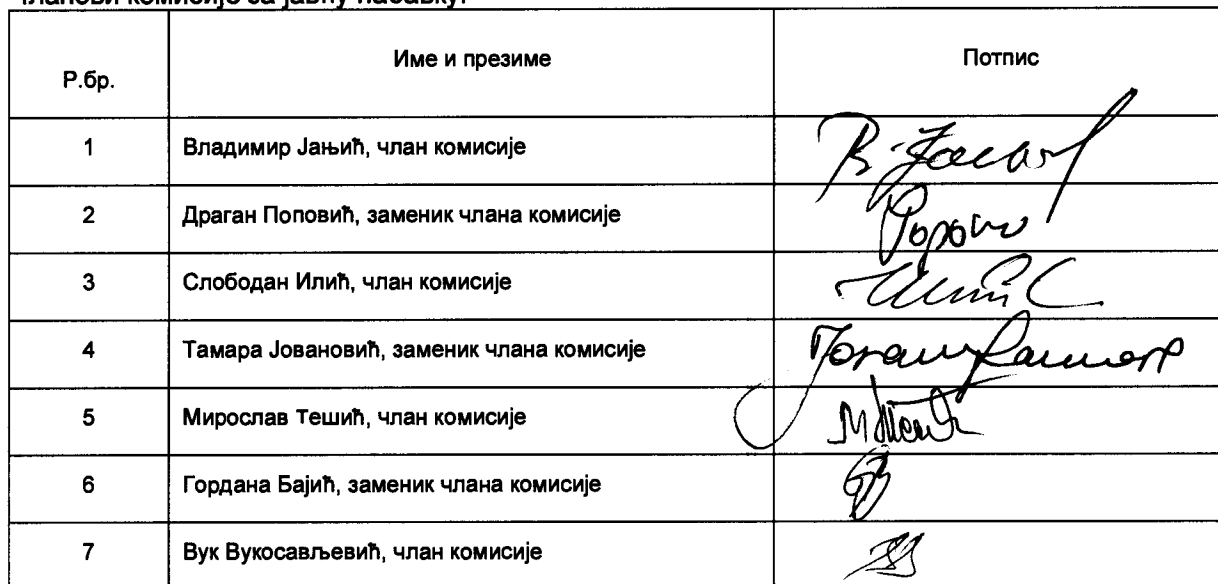 чланови комисије за јавну набавку:
Р.бр. Име и презиме Потпис
1 Владимир Јањић, члан комисије
2 Драган Поповић, заменик члана комисије
3 Слободан Илић, члан комисије
4 Тамара Јовановић, заменик члана комисије
5 Мирослав Тешић, члан комисије
6 Гордана Бајић, заменик члана комисије
7 Вук Вукосављевић, члан комисије